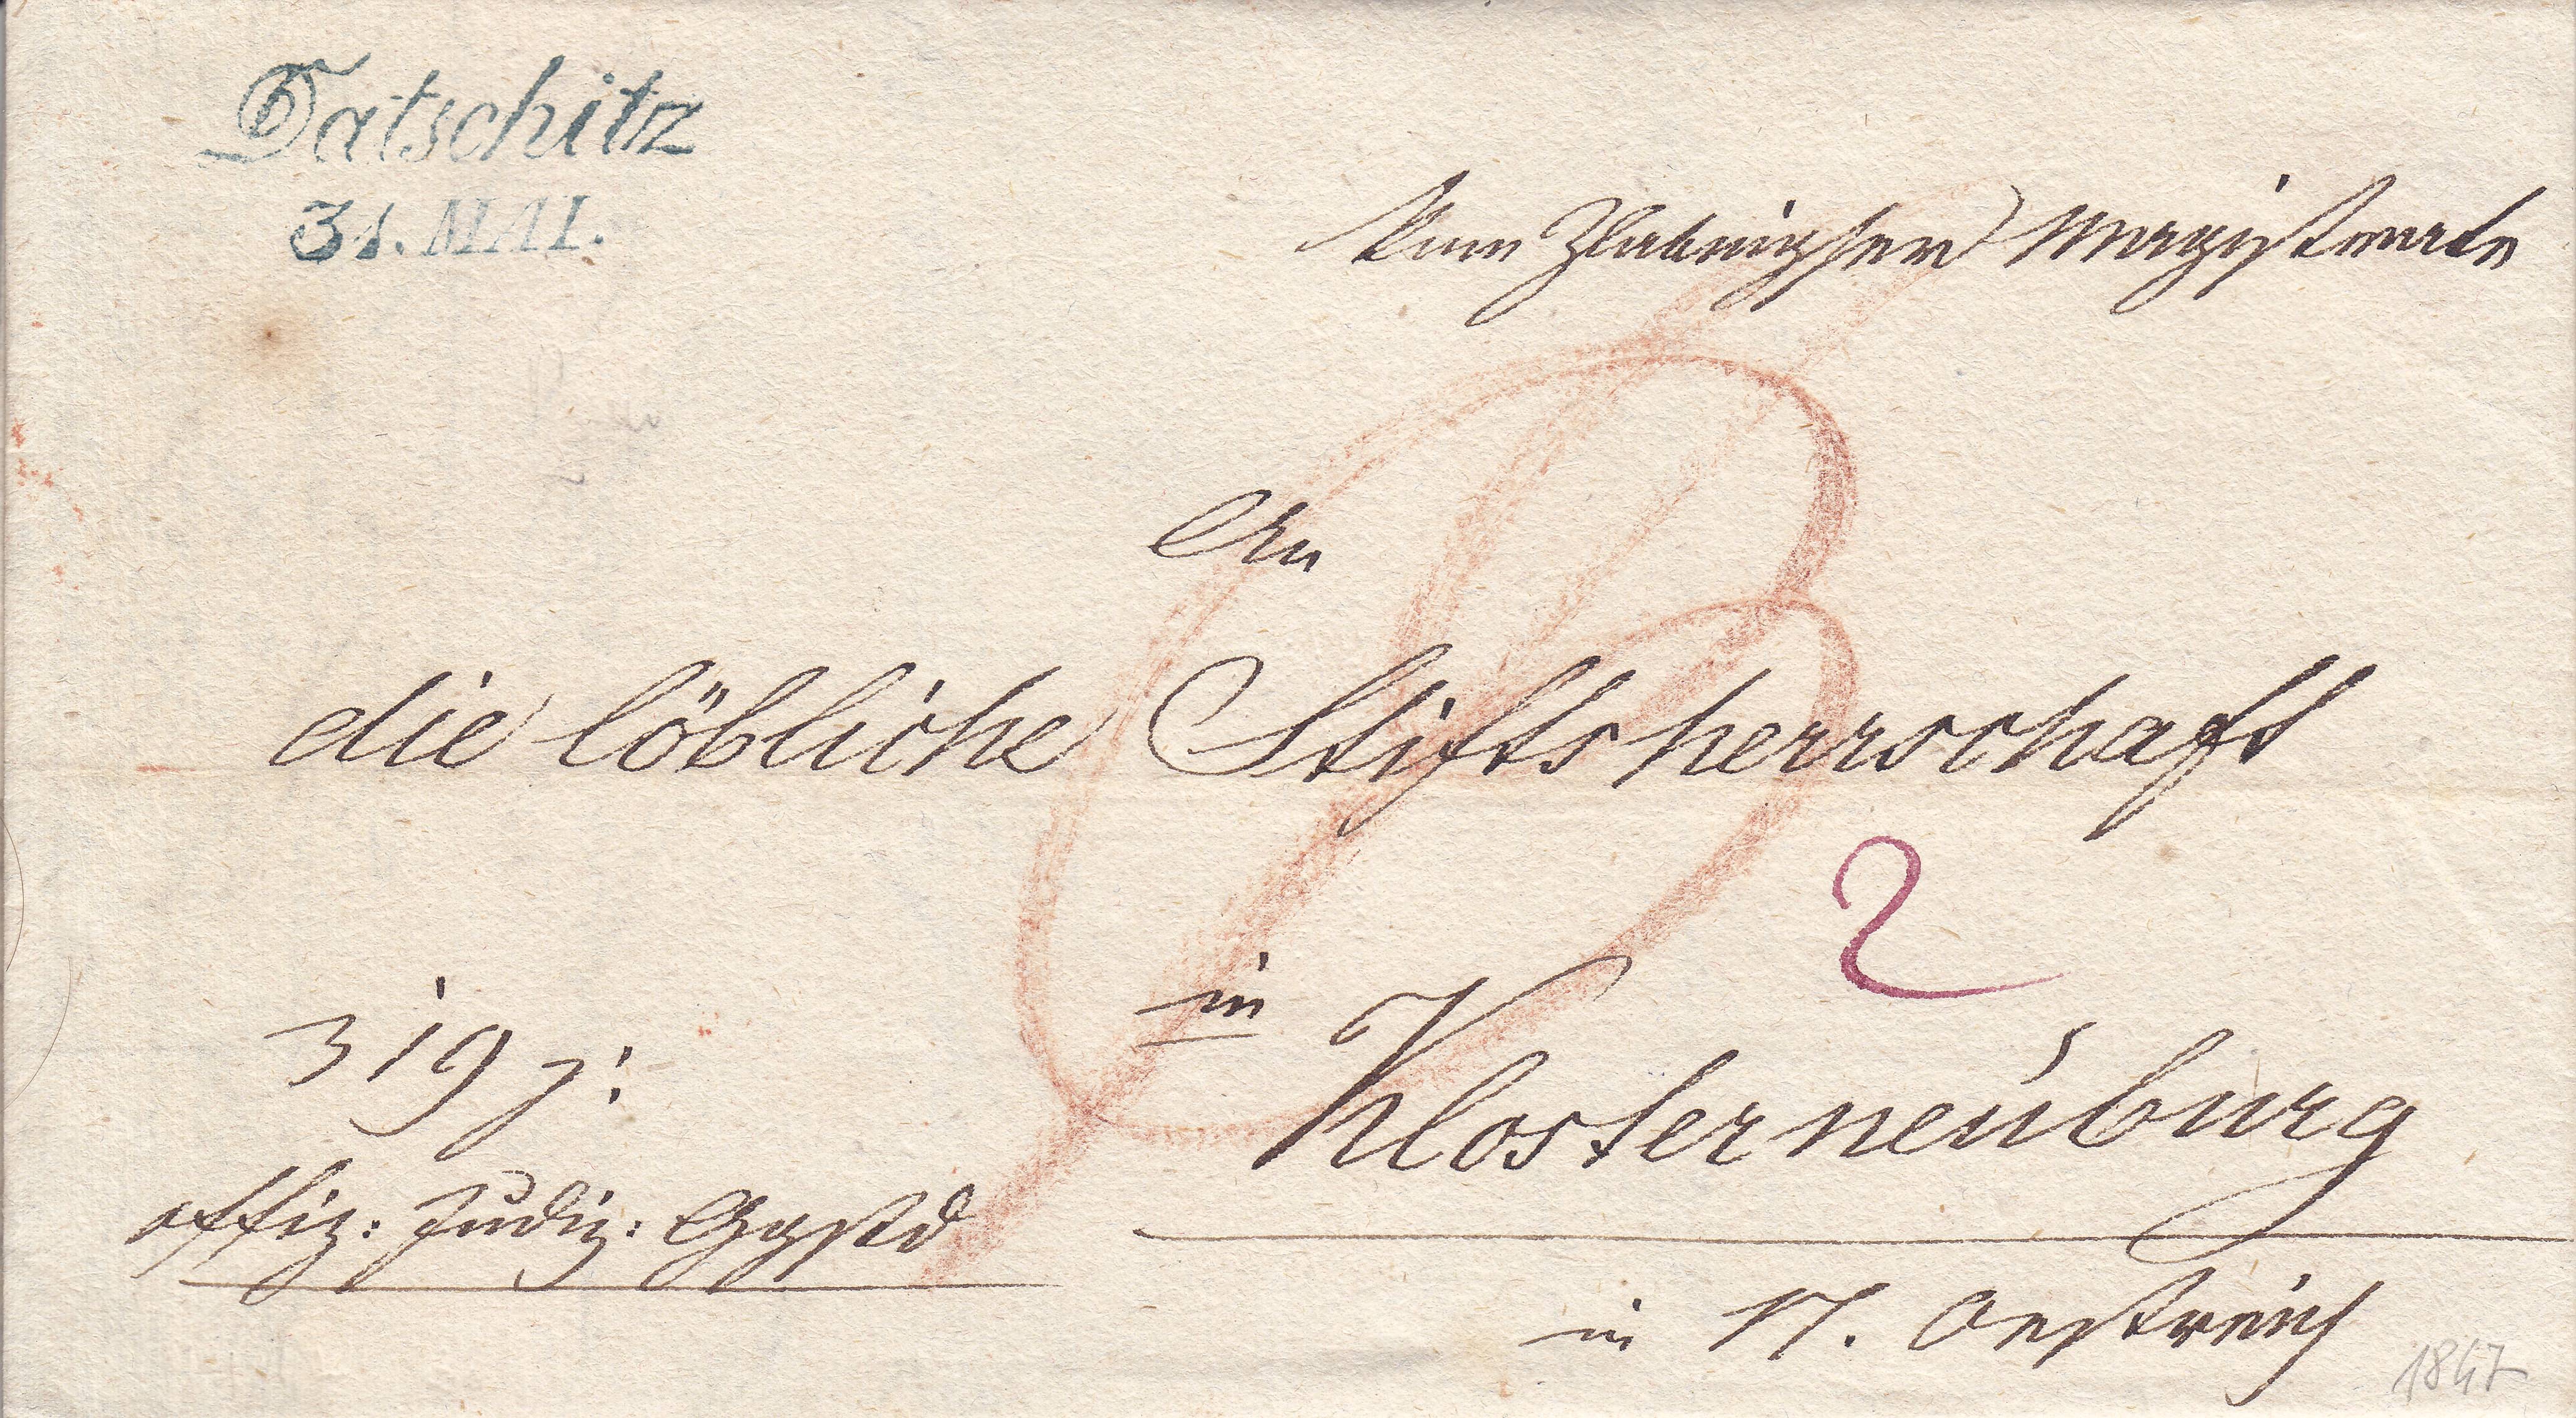 Datschitz
31. MAI.
Vom Zlabingser Magistrate
An
die löbliche Stiftsherrschaft
2
in
Klosterneuburg
319 j:
offiz: Judiz: Ggstd
in N. Oestreich
1847